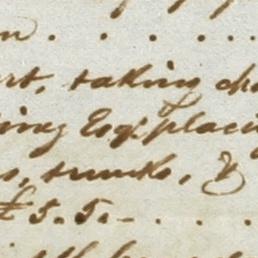 n . . . . . .
rt, taking ch
ing Esq. placi
s, trunks, &
£5.5.- . . . .